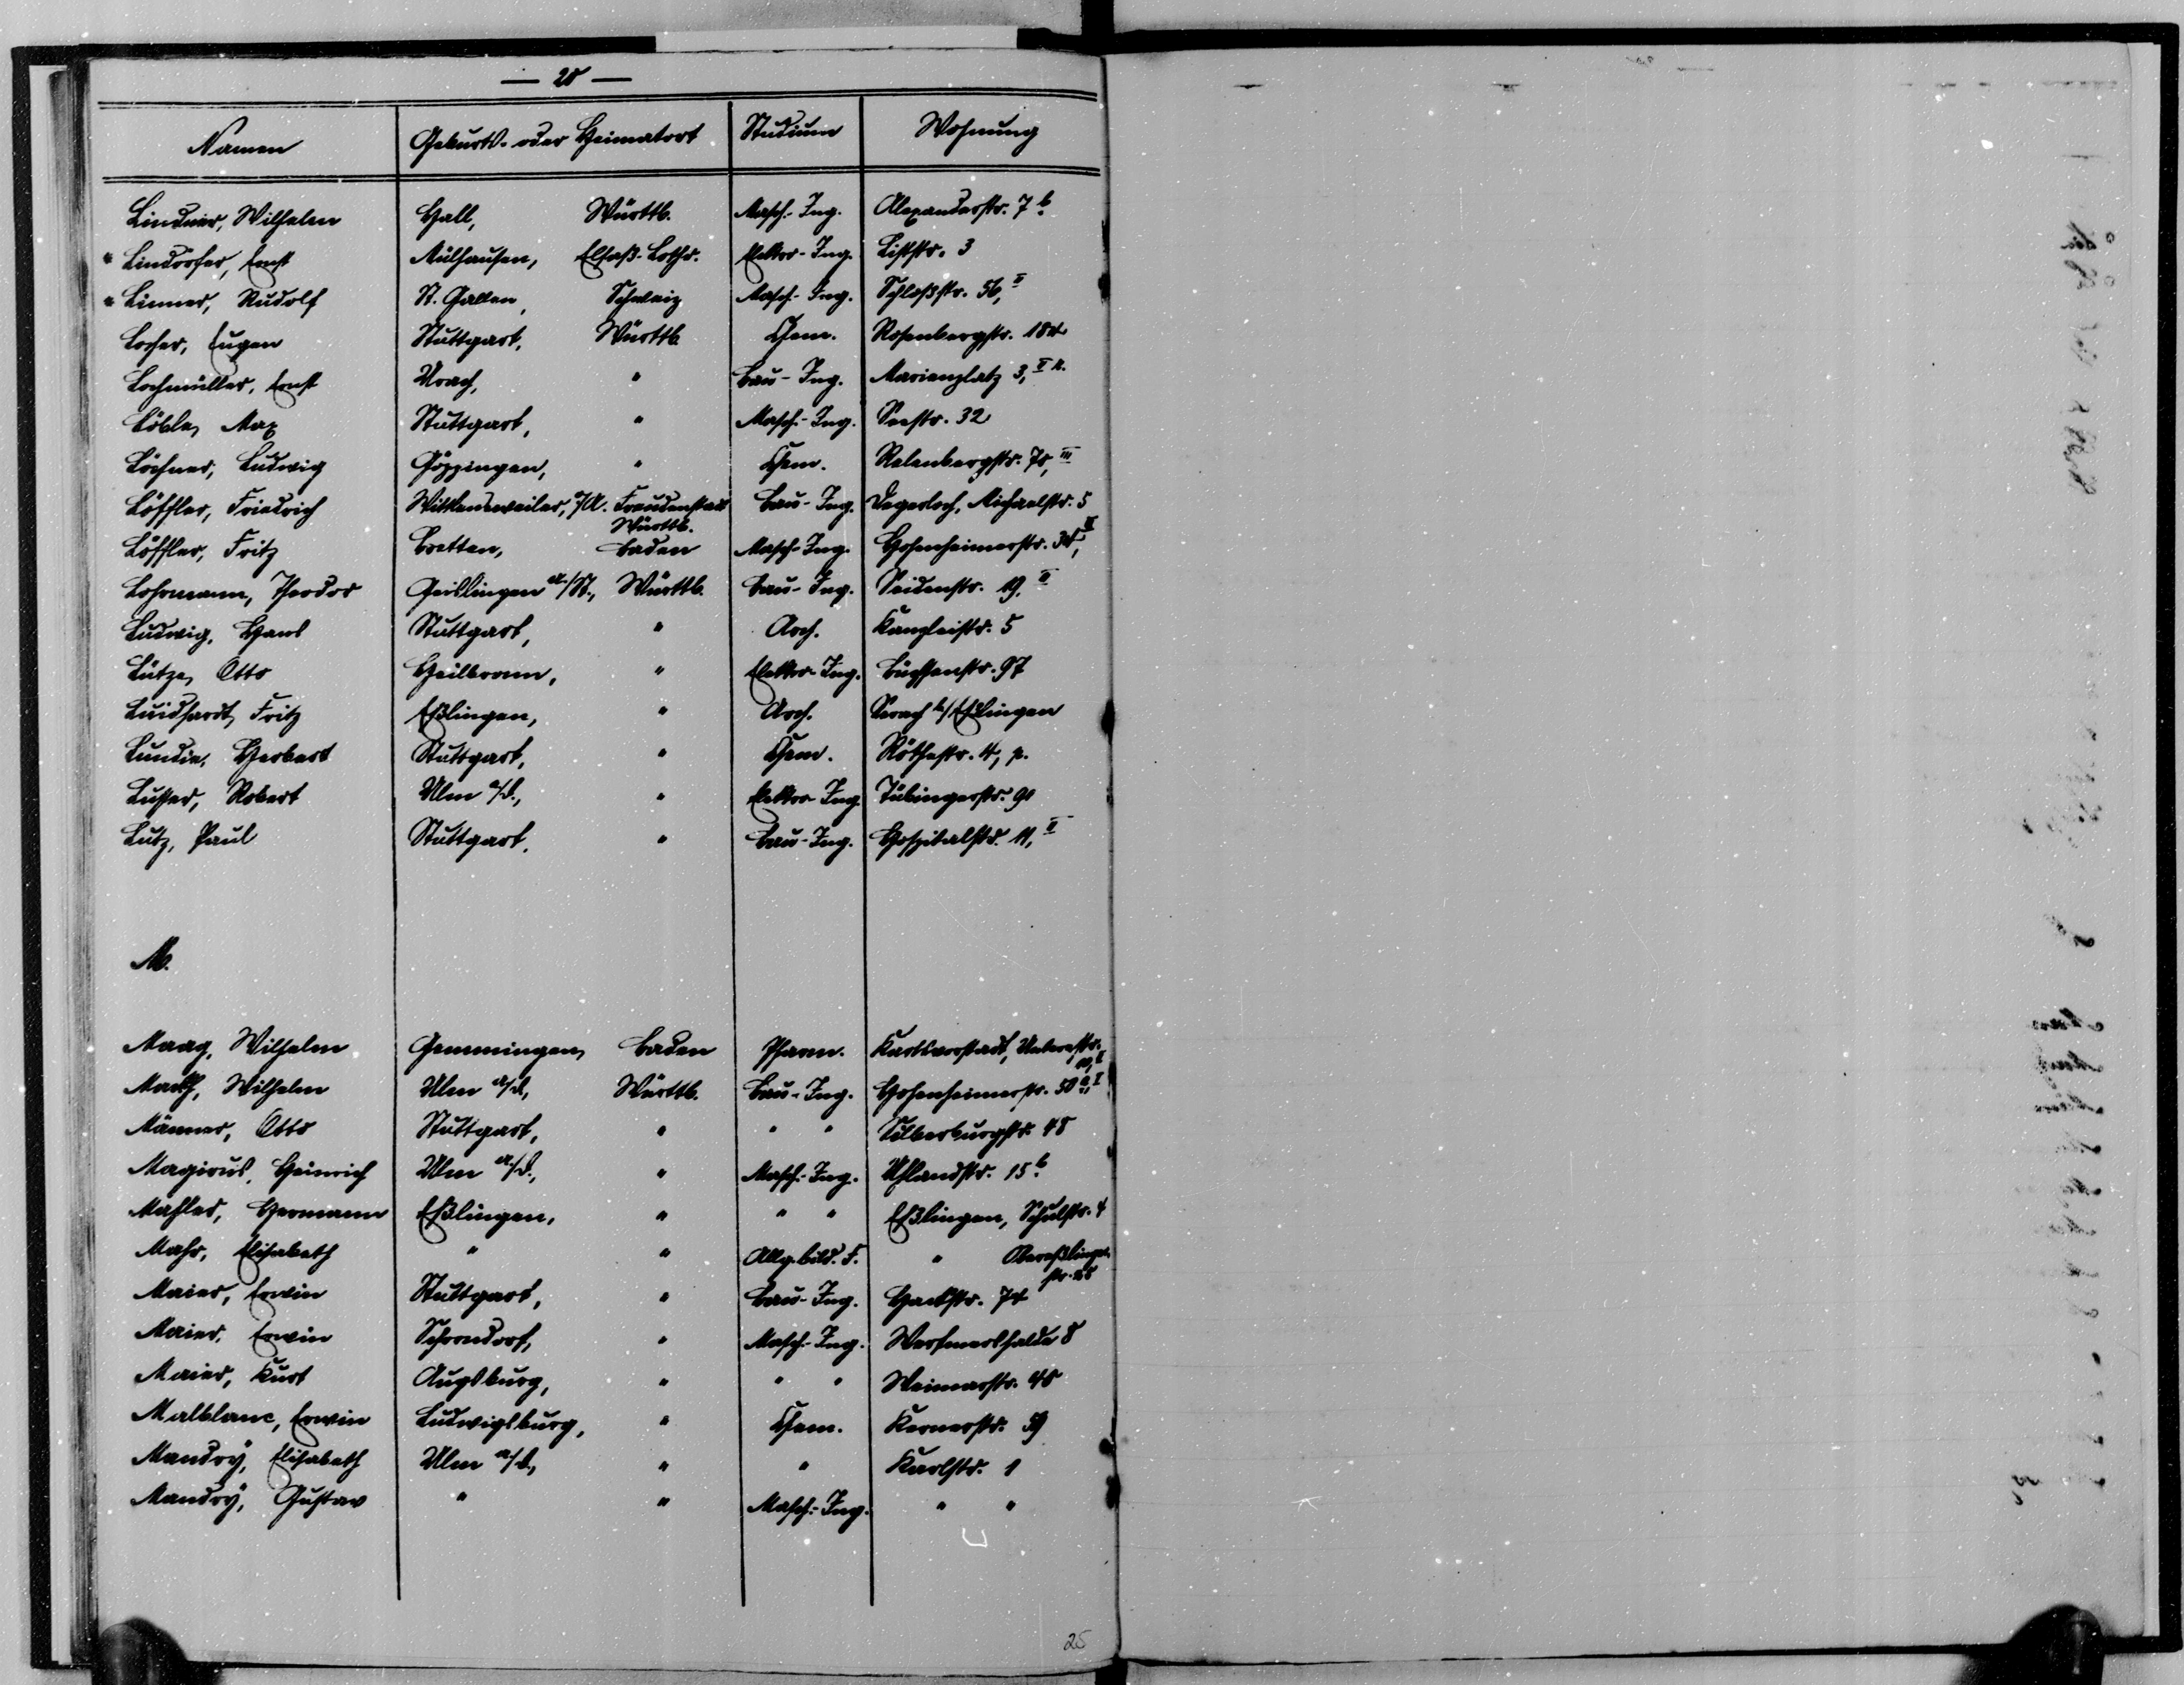 — 25 —
Namen Geburts- oder Heimatort Studium Wohnung
Lindner, Wilhelm Hall, Württb. Masch.-Ing. Alexanderstr. 7 b
* Lindörfer, Ernst Mülhausen, Elsaß-Lothr. Elektro-Ing. Liststr. 3
* Linner, Rudolf St. Gallen, Schweiz Masch.-Ing. Schloßstr. 56, II
Locher, Eugen Stuttgart, Württb. Chem. Rosenbergstr.
Lochmüller, Ernst Urach, " Bau-Ing. Marienplatz 3, II r.
Löble, Max Stuttgart, " Masch.-Ing. Seestr. 32
Löchner, Ludwig Göppingen, " Chem. Relenbergstr. III
Löffler, Friedrich Wittlensweiler, O/A. Freudenstadt Bau-Ing. Degerloch, Michaelstr. 5
Württb.
Löffler, Fritz Bretten, Baden Masch.-Ing. Hohenheimerstr.
Lohrmann, Theodor Geislingen a/St., Württb. Bau-Ing. Seidenstr. 19, II
Ludwig, Hans Stuttgart, " Arch. Kanzleistr. 5
Lütze, Otto Heilbronn, " Elektro-Ing. Büchsenstr. 97
Luidhardt, Fritz Eßlingen, " Arch. Serach b/Eßlingen
Lundin, Herbert Stuttgart, " Chem. Röthestr. 4, p.
Lusser, Robert Ulm a/D., " Elektro-Ing. Tübingerstr.
Lutz, Paul Stuttgart, " Bau-Ing. Hospitalstr. 11, II
M.
Maag, Wilhelm Gemmingen, Baden Pharm. Karlsvorstadt, Unterestr.
Mack, Wilhelm Ulm a/D., Württb. Bau-Ing. Hohenheimerstr. 50 a, I
Männer, Otto Stuttgart, " " " Silberburgstr. 48
Magirus, Heinrich Ulm a/D., " Masch.-Ing. Uhlandstr. 15 b
Mahler, Hermann Eßlingen, " " " Eßlingen, Schulstr. 4
Mahr, Elisabeth " " Allg. bild. F. " Obereßlinger-
str.
Maier, Erwin Stuttgart, " Bau-Ing. Hackstr.
Maier, Erwin Schorndorf, " Masch.-Ing. Werfmershalde 8
Maier, Kurt Augsburg, " " " Weimarstr.
Malblanc, Erwin Ludwigsburg, " Chem. Kernerstr. 59
Mandry, Elisabeth Ulm a/D., " " Karlstr. 1
Mandry, Gustav " " Masch.-Ing. " "
25